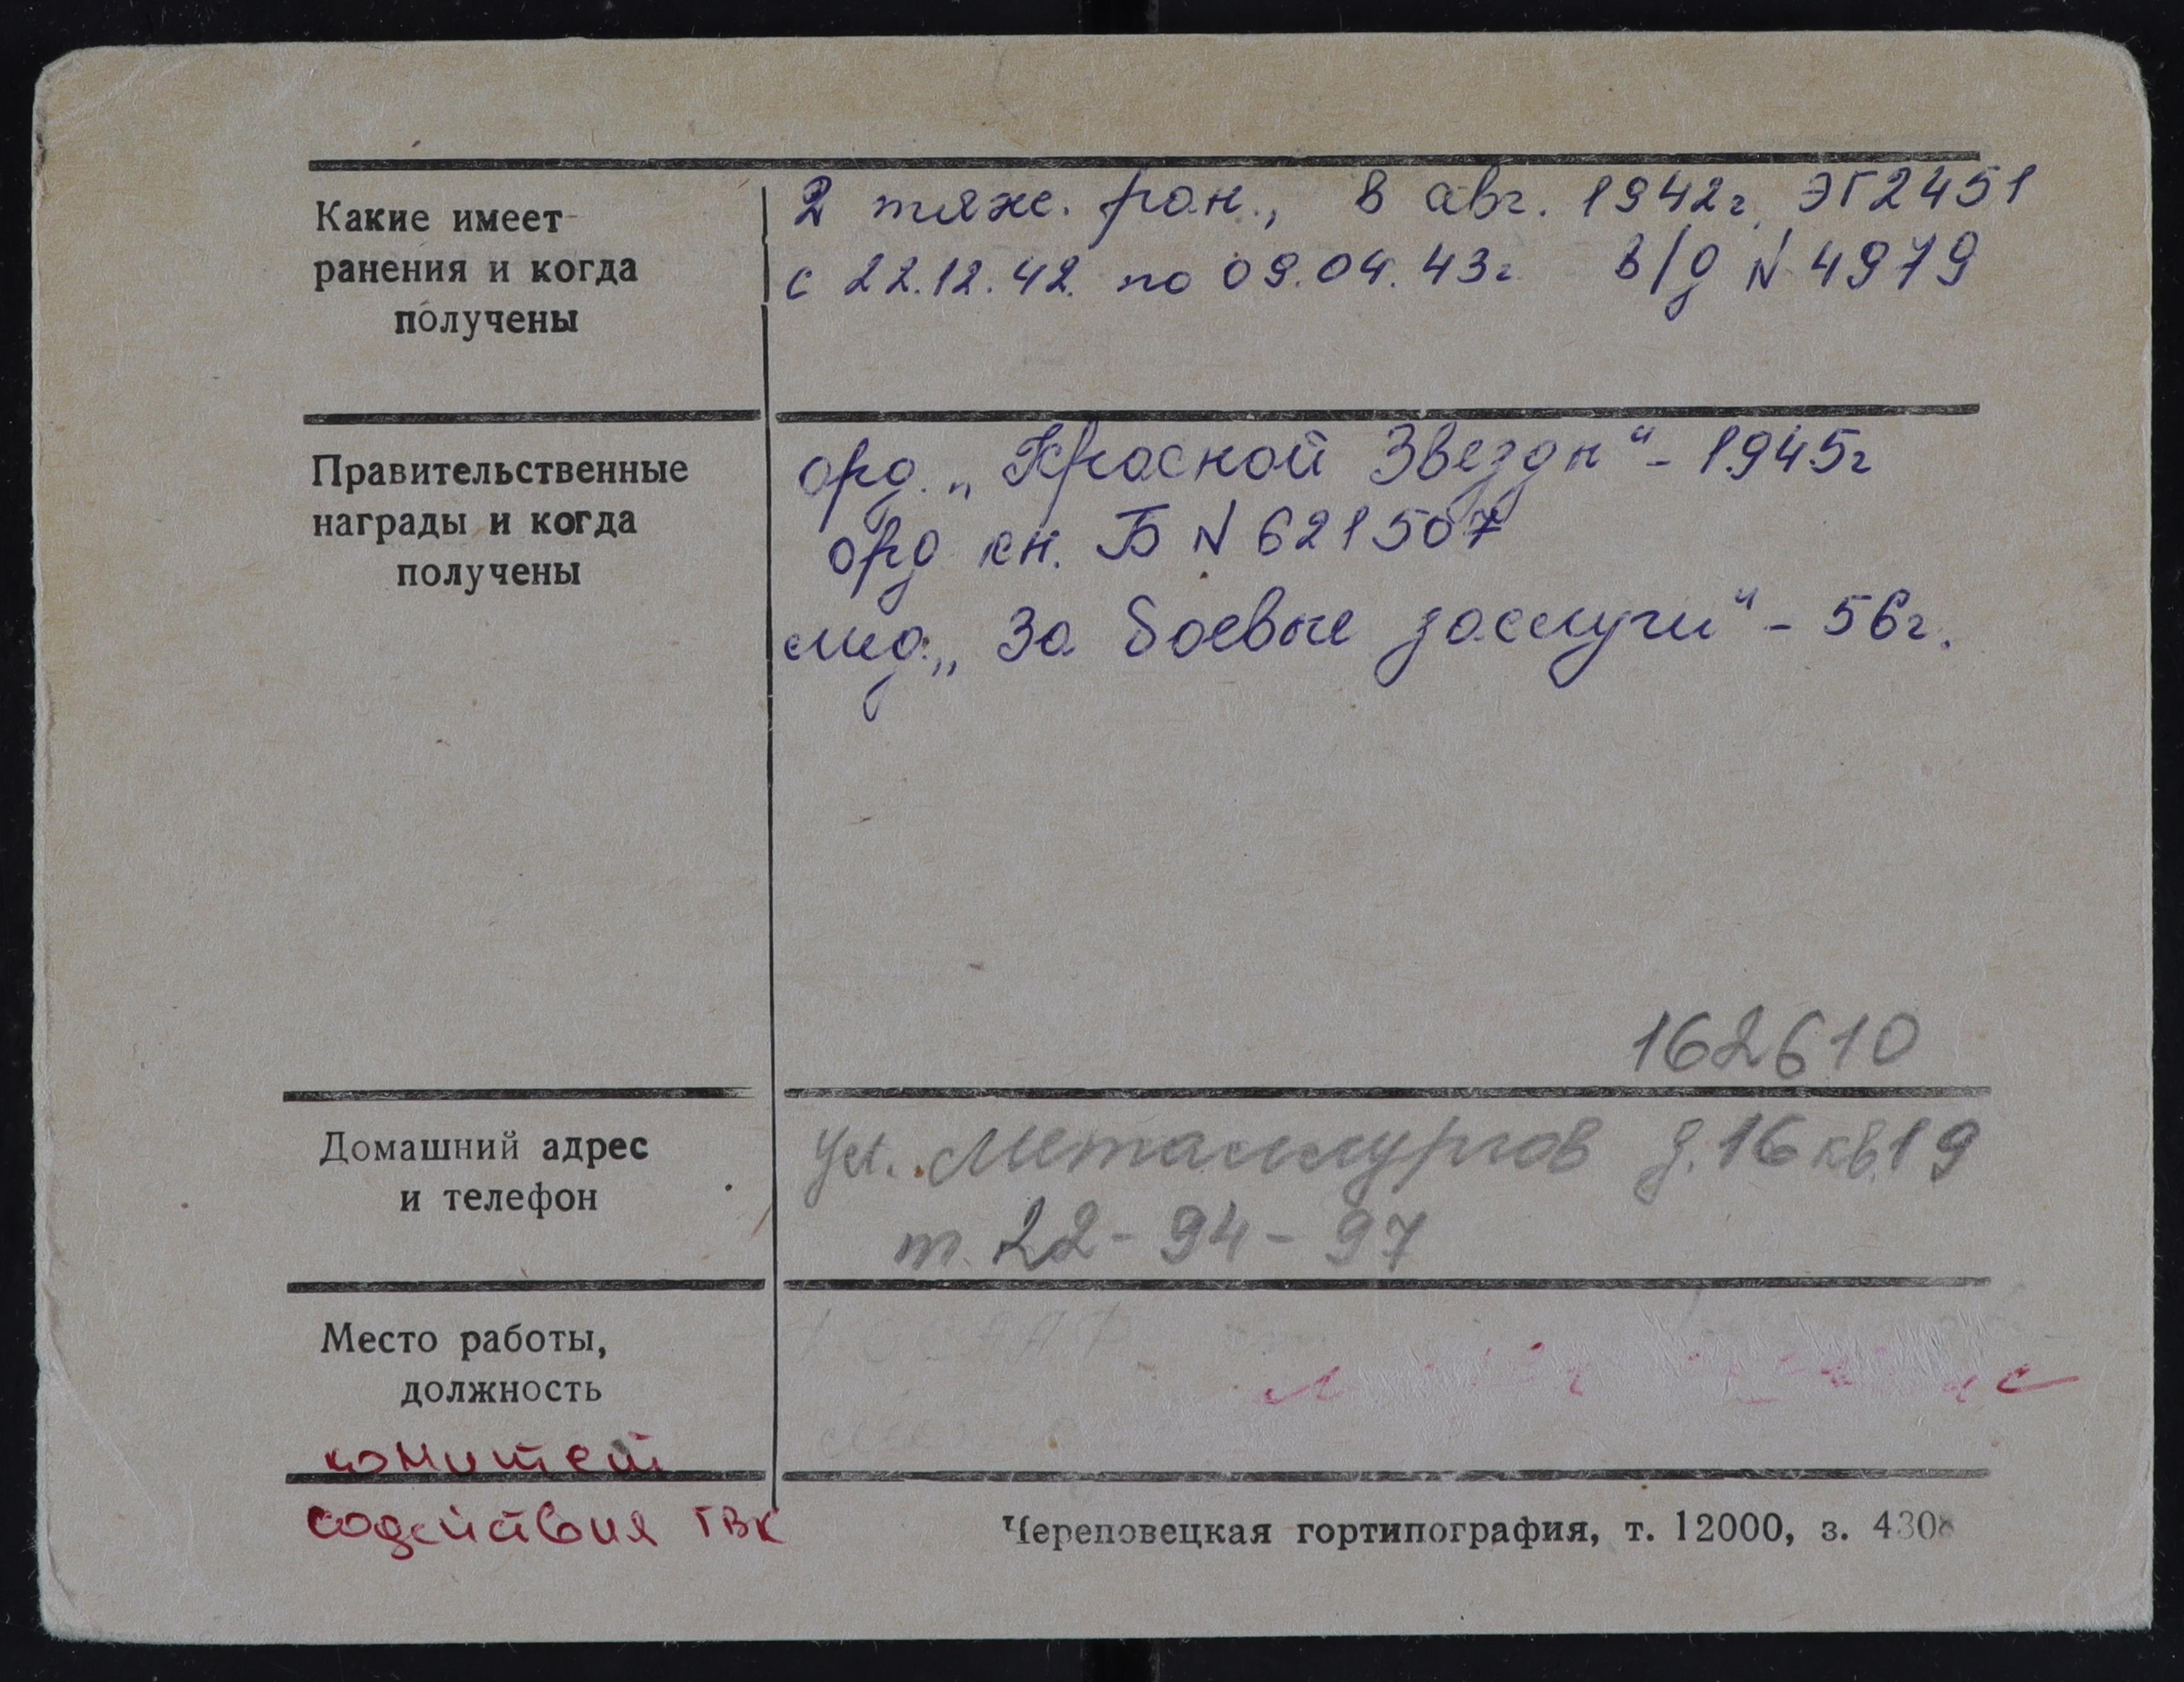 Какие имеет
ранения и когда
получены
2 тяже. ран., в авг. 1942г. ЭГ2451
с 22.12.42. по 09.04.43г в/д N 4979
Правительственные
награды и когда
получены
орд. „Красной Звезды“ - 1945г
орд кн. Б N 621507
мед. „За боевые заслуги“ - 56г.
162610
Домашний адрес
и телефон
ул. Металлургов д.16 кв.19
т. 22-94-97
Место работы,
должность
комитет
содействия ГВК
Череповецкая гортипография, т. 12000, з. 4308